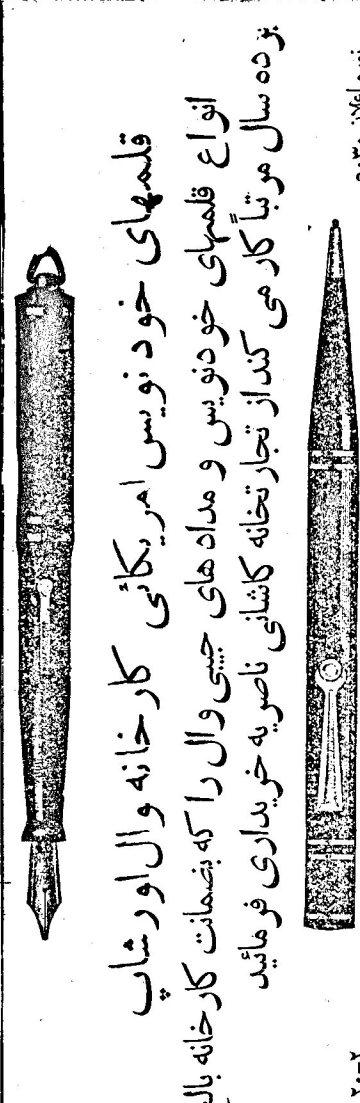 قلمهای خودنویس امریکائی کارخانه وال اورشاپ
انواع قلمهای خودنویس و مدادهای جیبی وال را که بضمانت کارخانه بالغ
بر ده سال مرتباً کار می کند از تجارتخانه کاشانی ناصریه خریداری فرمائید
۲۰-۲